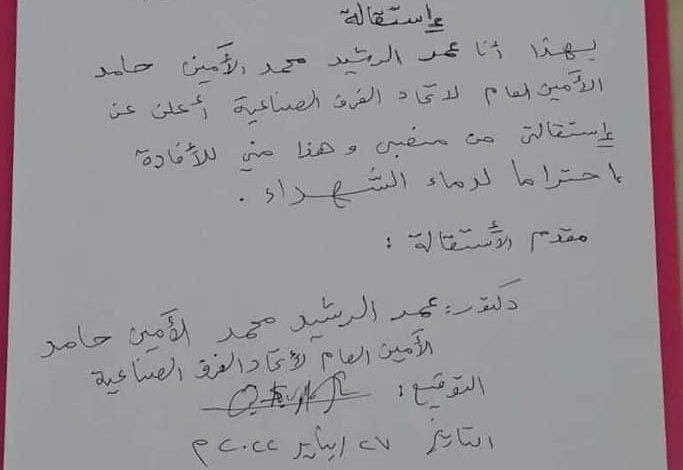 إستقالة
بهذا أنا عمر الرشيد محمد الأمين حامد
الأمين العام لاتحاد الغرف الصناعية أعلن عن
إستقالتي من منصبي وهذا مني للأفادة
احتراما لدماء الشهداء .
مقدم الأستقالة :
دكتور: عمر الرشيد محمد الأمين حامد
الأمين العام لأتحاد الغرف الصناعية
التوقيع :
التاريخ ٢٧ يناير ٢٠٢٢ م